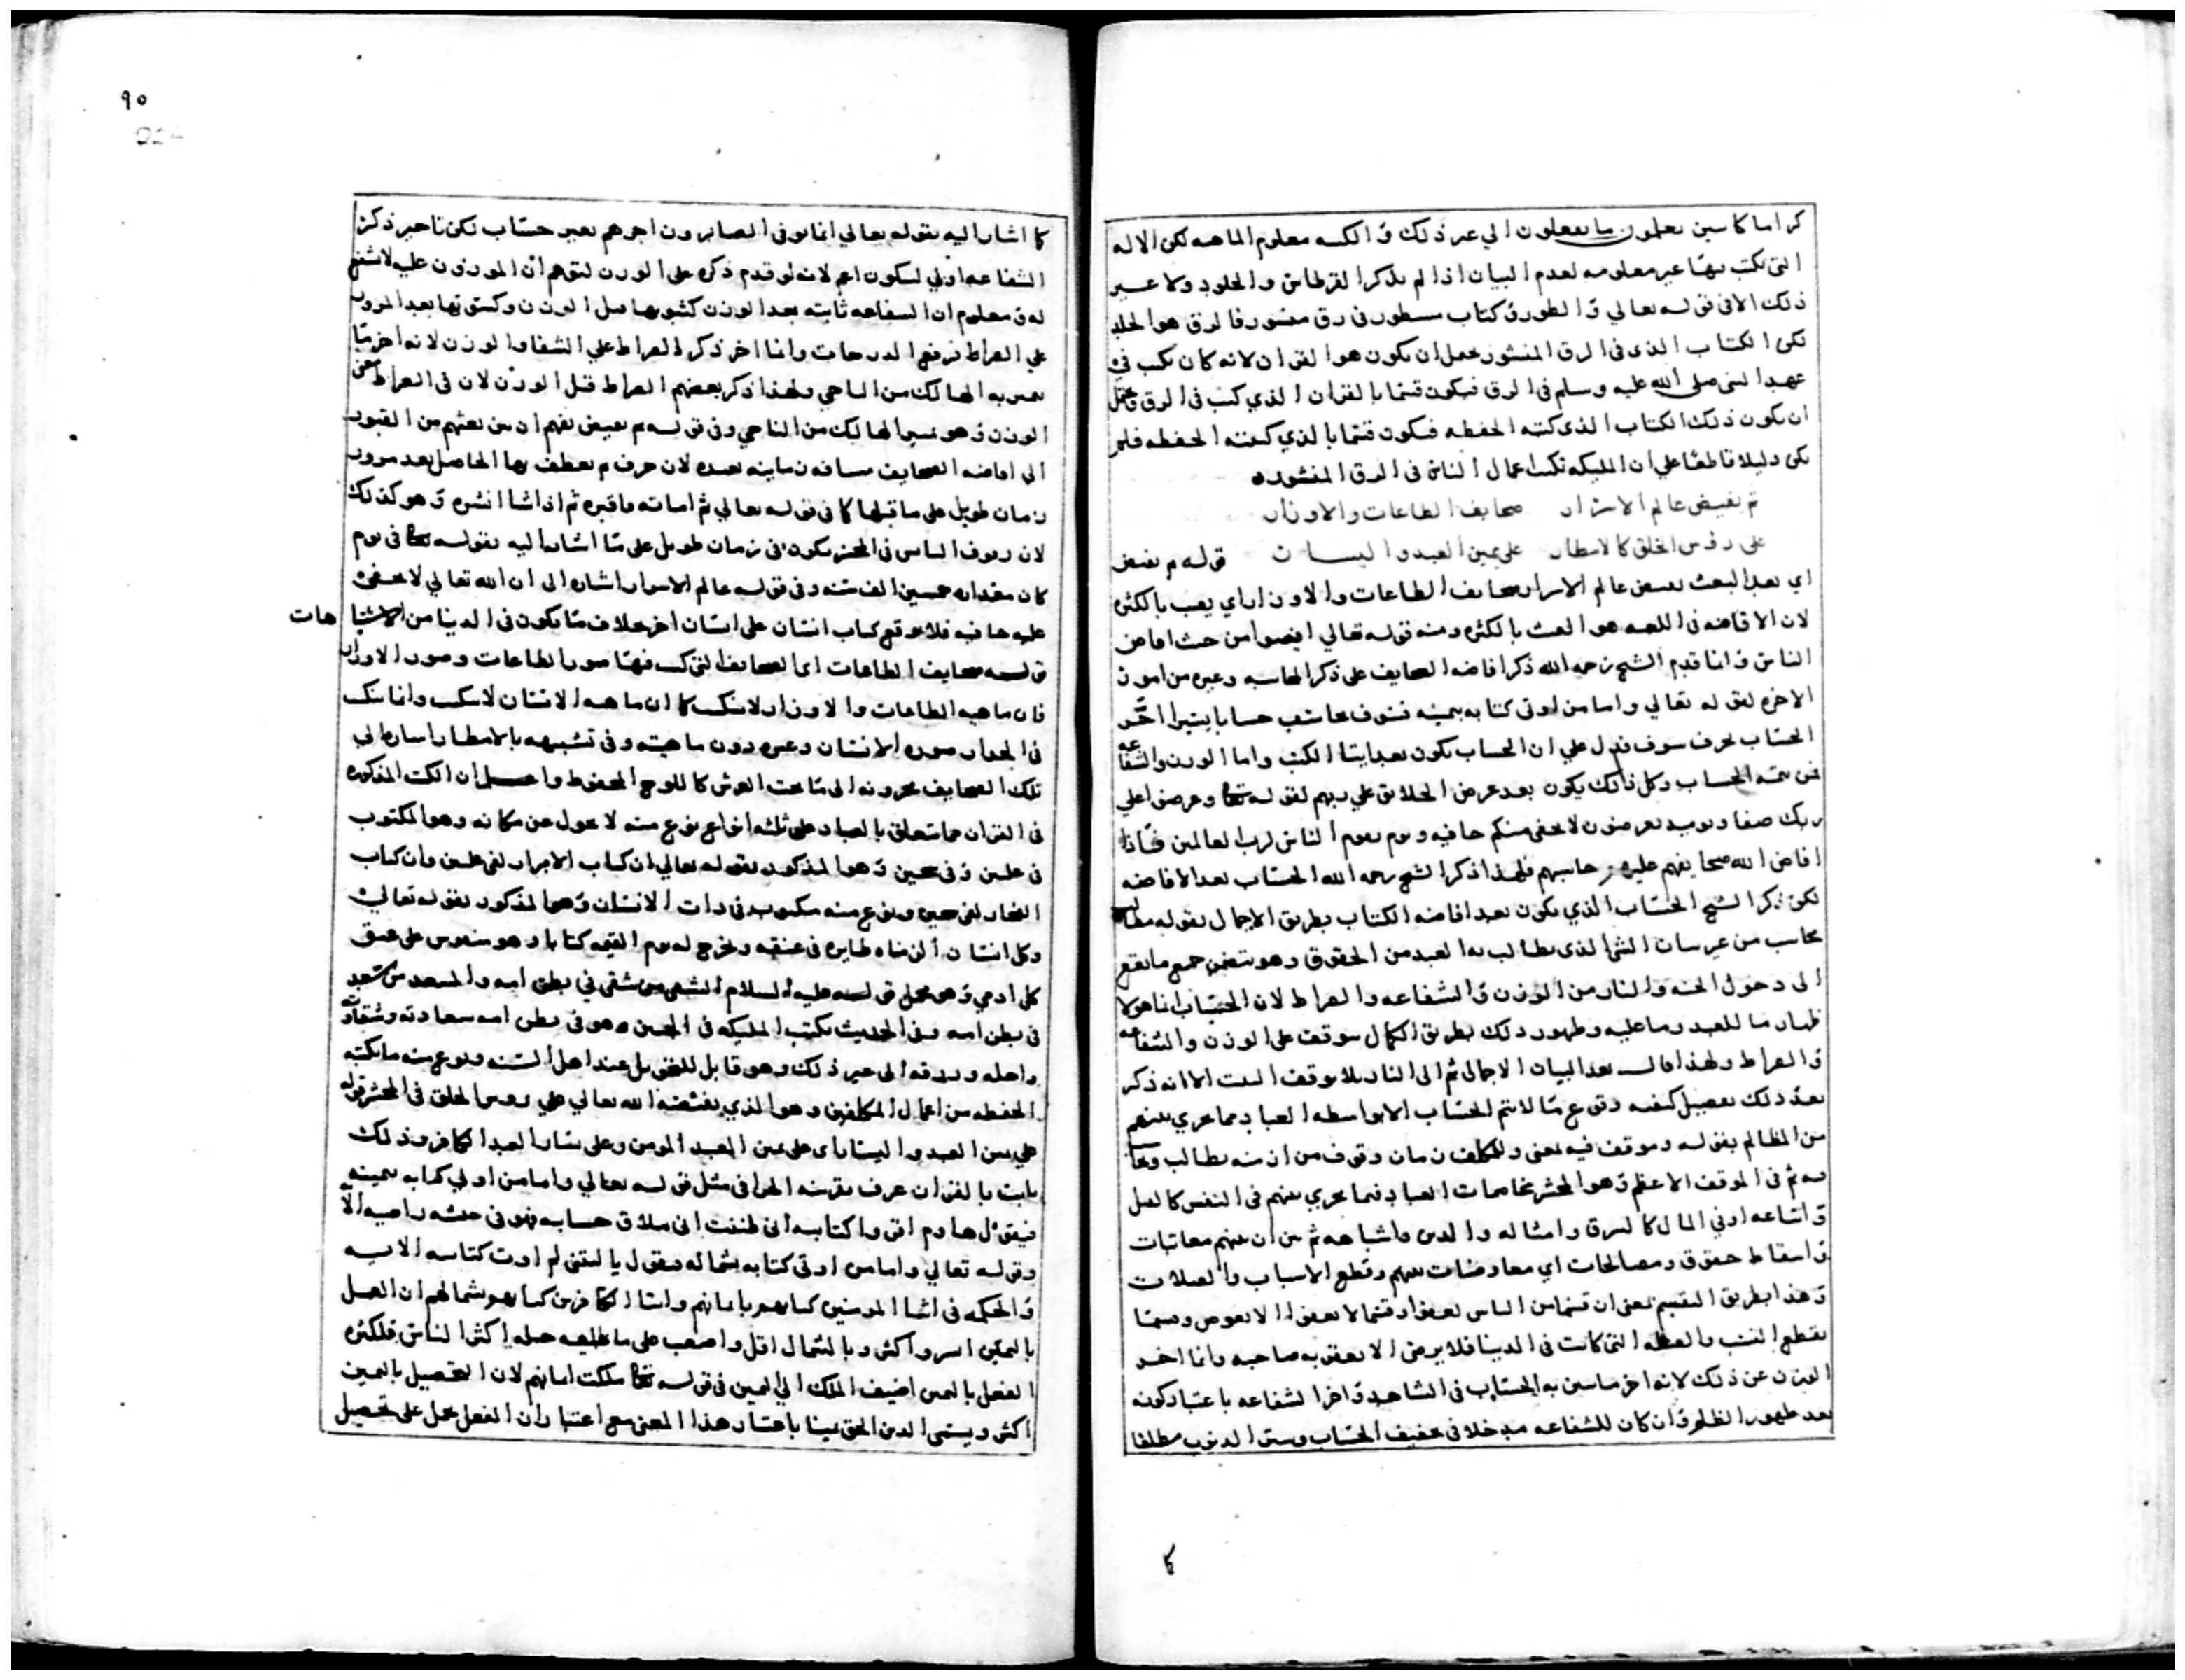 كراما كاتبين يعلمون ما تفعلون الي غير ذلك و الكتبه معلوم الماهيه لكن الاله
التي يكتب بها غير معلومه لعدم البيان اذا لم يذكر القرطاس و الجلود ولا غير
ذلك الا في قوله تعالي و الطور و كتاب مسطور في رق منشور فالرق هو الجلد
لكن الكتاب الذي في الرق المنشور يحمل ان يكون هو القران لانه كان يكتب في
عهد النبي صلي الله عليه وسلم في الرق فيكون قسما بالقران الذي كتب في الرق و يحتمل
ان يكون ذلك الكتاب الذي كتبه الحفظه فيكون قسما بالذي كتبته الحفظه فلم
يكن دليلا قاطعا علي ان المليكه تكتب اعمال الناس في الرق المنشوره
ثم يفيض عالم الاسرار صحايف الطاعات والاوزار
علي رؤس الخلق كالامطار علي يمين العبد و اليسار قوله ثم يفيض
اي بعد البعث يفيض عالم الاسرار صحايف الطاعات والاوزار اي يصب بالكثره
لان الافاضه في اللغه هو الصب بالكثره ومنه قوله تعالي افيضوا من حيث افاض
الناس و انما قدم الشيخ رحمه الله ذكر افاضه الصحايف علي ذكر المحاسبه وغيره من امور
الاخره لقوله تعالي واما من اوتي كتابه بيمينه فسوف يحاسب حسابا يسيرا اخر
الحساب بحرف سوف فدل علي ان الحساب يكون بعد ايتا الكتب واما الوزن والشفاعه
فمن تتمه الحساب وكل ذلك يكون بعد عرض الخلايق علي ربهم لقوله تعا وعرضوا علي
ربك صفا و يوميذ تعرضون لا يخفي منكم خافيه ويوم يقوم الناس لرب العالمين فاذا
افاض الله صحايفهم عليهم حاسبهم فلهذا ذكر الشيخ رحمه الله الحساب بعد الافاضه
لكن ذكر الشيخ الحساب الذي يكون بعد افاضه الكتاب بطريق الاجمال بقوله مطالب
يحاسب من غير بيان الشي الذي يطالب به العبد من الحقوق وهو يتضمن جميع ما يقع
الي دخول الجنه والنار من الوزن و الشفاعه و الصراط لان الحساب انما هو لا
ظهار ما للعبد وما عليه وظهور ذلك بطريق الكمال موقوف علي الوزن والشفاعه
و الصراط ولهذا قال بعد البيان الاجمالي ثم الي النار بلا توقف الا انه ذكر
بعد ذلك تفصيل كيفيه وقوع ما لا يتم الحساب الا بواسطه العباد مما يجري بينهم
من المظالم بقوله وموقف فيه يعني وللمكلف زمان وقوف من ازمنه يطالب
فيه ثم في الموقف الاعظم و هو المحشر مخاصمات العباد فيما يجري بينهم في النفس كالقتل
و اشباعه او في المال كالسرق وامثاله و الدين واشباهه ثم من ان بينهم معاتبات
و اسقاط حقوق ومصالحات اي معاوضات بينهم وقطع الاسباب و الصلات
و هذا بطريق التقسيم يعني ان قسما من الناس يعفو وقسما لا يعفو الا بعوض وقسما
يقطع النسب و العطه التي كانت في الدنيا فلا يرضي الا بحقه صاحبه وانما اخر
الوزن عن ذلك لانه اخر ما يتبين به الحساب في الشاهد و اخر الشفاعه باعتبار كونه
بعد ظهور الظلم و ان كان للشفاعه مدخلا في تخفيف الحساب وستر الذنوب مطلقا
كا
٩٠
كا اشار اليه بقوله تعالي انما يوفي الصابرون اجرهم بغير حساب لكن تاخير ذكر
الشفاعه اولي ليكون اعم لانه لو قدم ذكره علي الوزن لتوهم ان الموزون عليه لا شفيع
له و معلوم ان الشفاعه ثابته بعد الوزن كثبوتها قبل الوزن وكثبوتها بعد المرور
علي الصراط لرفع الدرجات وانما اخر ذكر الصراط علي الشفا و الوزن لانه اخر ما
يميز به الهالك من الناجي ولهذا ذكر بعضهم الصراط قبل الوزن لان في الصراط معني
الوزن و هو تميز الهالك من الناجي وفي قوله ثم يفيض يفهم ان بين بعثهم من القبور
الي افاضه الصحايف مسافه زمانيه بعيده لان حرف ثم يعطف بها الحاصل بعد مرور
زمان طويل علي ما قبلها كا في قوله تعالي ثم اماته فاقبره ثم اذا شا انشره و هو كذلك
لان وقوف الناس في المحشر يكون في زمان طويل علي ما اشار اليه بقوله تعا في يوم
كان مقداره خمسين الف سنه وفي قوله عالم الاسرار اشاره الي ان الله تعالي لا يخفي
عليه خافيه فلا يوقع كتاب انسان علي انسان اخر بخلاف ما يكون في الدنيا من الاشتبا هات
قوله صحايف الطاعات اي الصحايف التي كتب فيها صور الطاعات وصور الاوزار
فان ماهيه الطاعات والاوزار لا تكتب كا ان ماهيه الانسان لا تكتب وانما تكتب
في الجدار صوره الانسان وغيره دون ماهيته وفي تشبيهه بالامطار اشاره الي
تلك الصحايف مخزونه الي ما تحت العرش كاللوح المحفوظ واعلم ان الكتب المذكوره
في القران مما يتعلق بالعباد علي ثلثه انواع نوع منه لا يحول عن مكانه وهو المكتوب
في عليين و في سجين و هو المذكور بقوله تعالي ان كتاب الابرار لفي عليين وان كتاب
الفجار لفي سجين ونوع منه مكتوب في ذات الانسان و هو المذكور بقوله تعالي
وكل انسان الزمناه طايره في عنقه ونخرج له يوم القيمه كتابا وهو منقوش علي عنق
كل ادمي و هو محمل قوله عليه السلام الشقي من شقي في بطن امه والسعيد من سعد
في بطن امه وفي الحديث يكتب المليكه في الجبين وهو في بطن امه سعادته وشقاوته
واجله ورزقه الي غير ذلك وهو قابل للتغير بل عند اهل السنه ونوع منه ما يكتبه
الحفظه من اعمال المكلفين وهو الذي يفيضه الله تعالي علي رؤس الخلق في المحشر قوله
علي يمين العبد و اليسار اي علي يمين العبد المومن وعلي يسار العبد الكافر وذلك
ثابت بالقران عرف بقرينه الجزا في مثل قوله تعالي واما من اوتي كتابه بيمينه
فيقول هاوم اقروا كتابيه اني ظننت اني ملاق حسابيه فهو في عيشه راضيه الا
وقوله تعالي واما من اوتي كتابه بشماله فيقول يا ليتني لم اوت كتابيه الايه
و الحكمه في ايتا المومنين كتابهم بايمانهم وايتا الكافرين كتابهم بشمالهم ان العمل
باليمين ايسر واكثر وبالشمال اقل واصعب علي ما عليه جبله اكثر الناس فلكثره
الفعل باليمين اضيف الملك الي اليمين في قوله تعا ملكت ايمانهم لان التحصيل باليمين
اكثر ويسمي الدين الحق يمينا باعتبار هذا المعني مع اعتبار ان الفعل يحمل علي تحصيل